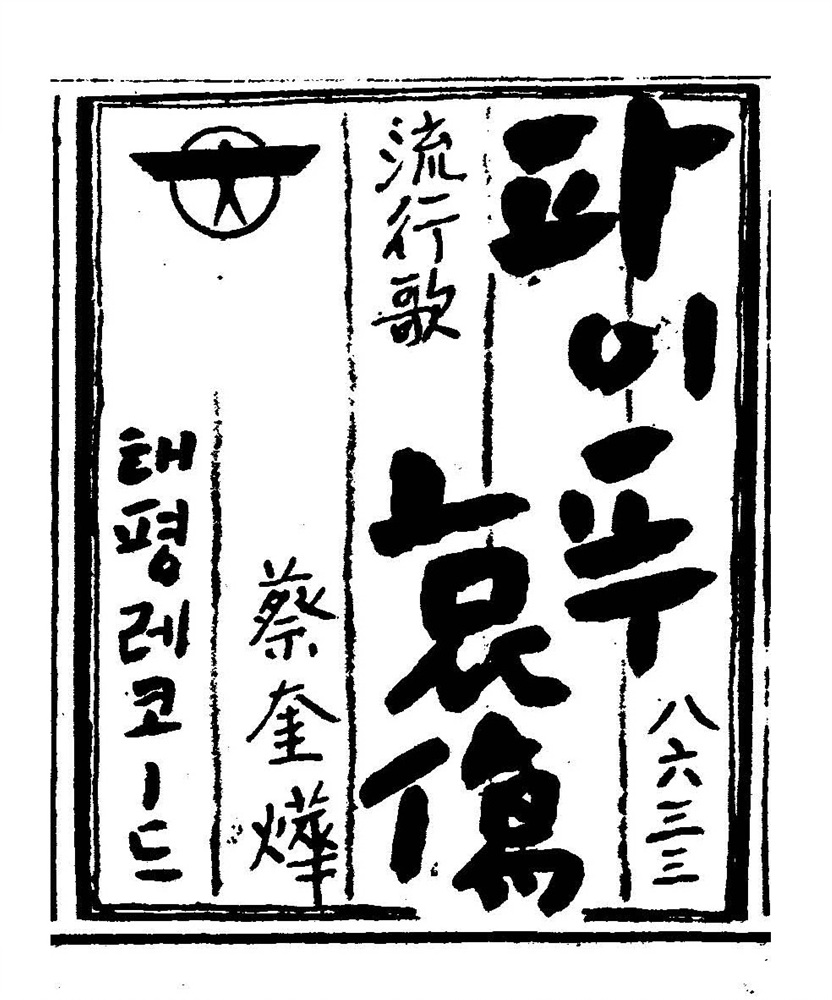 파이푸
哀傷
八六三三
流行歌
蔡奎燁
태평레코ー드